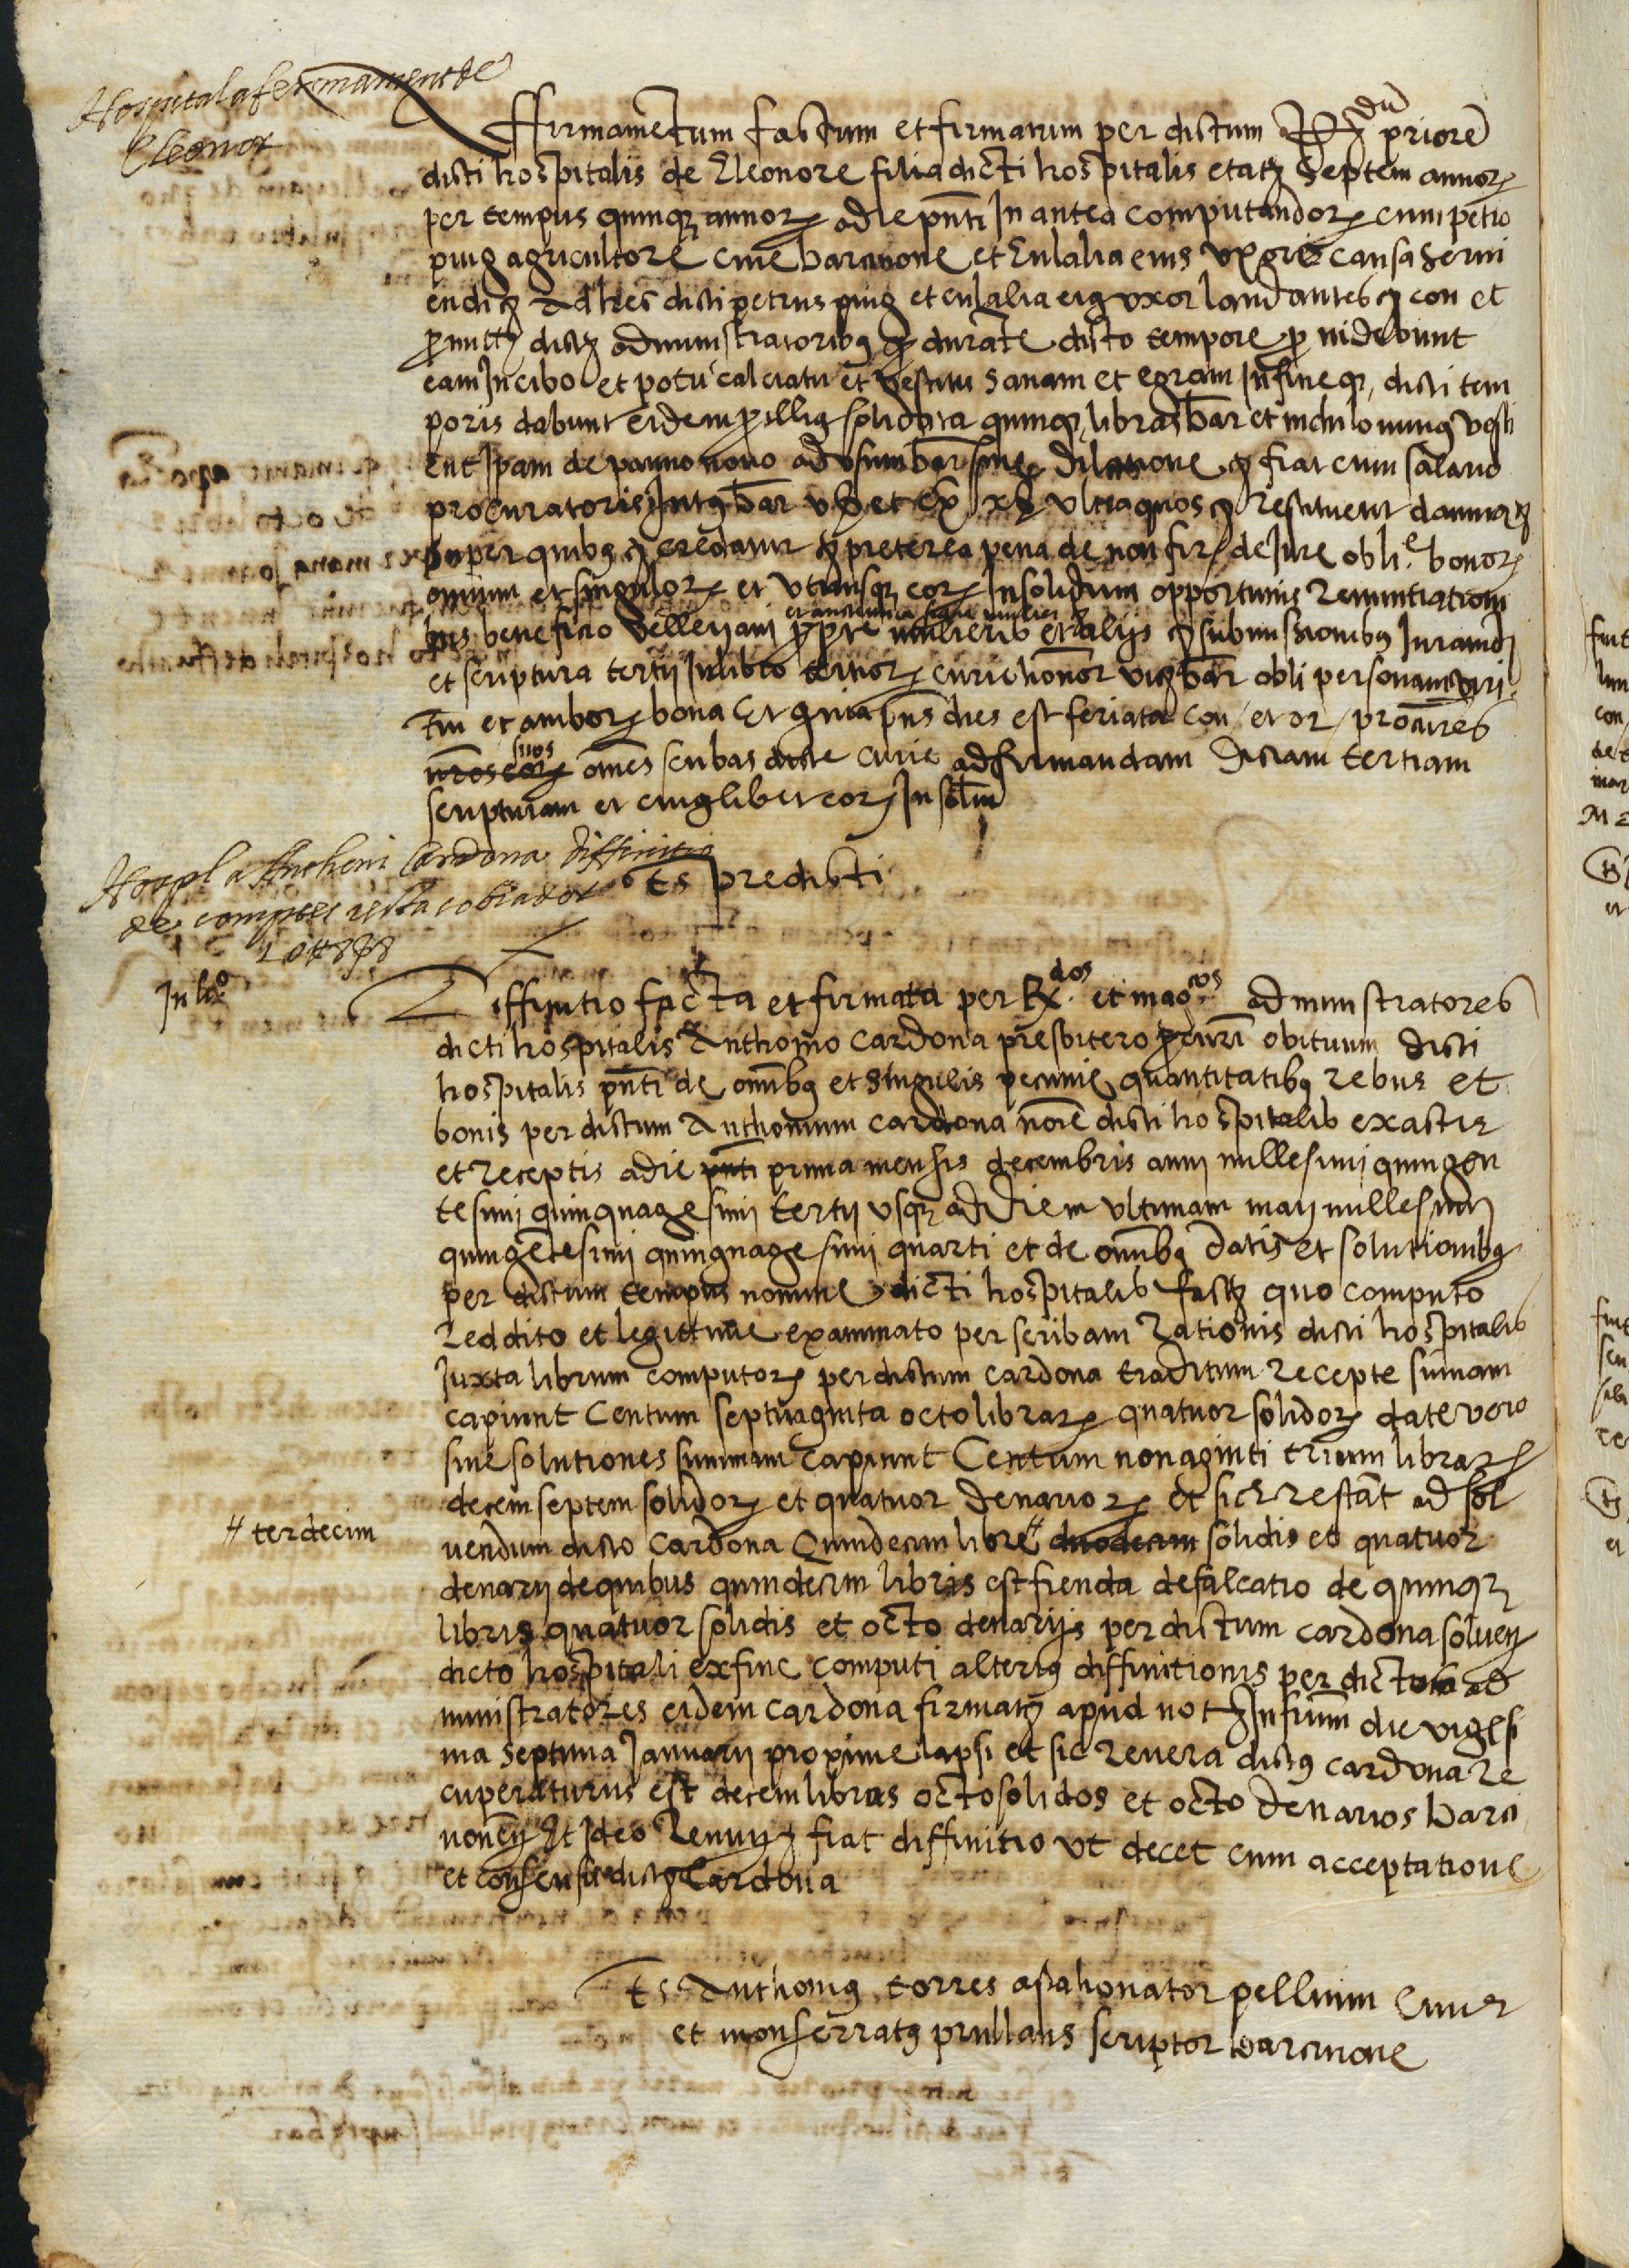 Hospital afermament de
Eleonor
Affirmamentum factum et firmatum per dictum Rdum priorē
dicti hospitalis de Eleonore filia dicti hospitalis etatꝫ septem annorꝫ
per tempus quinqꝫ annorꝫ a die pñti In antea computandorꝫ cum petro
puig agricultore cive barcinone et Eulalia eius uxore causa servi
endi ꝫ Ad hec dicti petrus puig et eulalia eiꝰ uxor laudantes ꝫ con et
ꝓmittꝫ dictꝫ administratoribꝰ qꝫ durāte dicto tempore ꝓvidebunt
eam In cibo et potu calciatu et vestitu sanam et egram In fine qꝫ dicti tem
poris dabunt eidem ꝓ illiꝰ solidata quinqꝫ libras bar et nichilominꝰ vesti
ent Ipam de panno novo ad usum bar sine dilatione ꝫ fiat cum salario
procuratoris Intꝰ bar vꝫ et ex xꝫ ultra quos ꝫ restituent damna ꝫ
super quibꝰ ꝫ credatur ꝫ preterea pena de non firꝫ de Jure obliᵉ. bonorꝫ
omnium et singulorꝫ et utriusqꝫ eorꝫ Insolidum opportunis renuntiationi
bus beneficio velleyani ꝓpter mulieris et alijs ꝫ submissionibꝰ Juramꝫ
et scriptura tertij In libro tertiorꝫ curie honor vicꝰ bar obli personam viri
tm̄ et amborꝫ bona Et quia pn̄s dies est feriata con / et or / procures
nros eorꝫ suos om̄es scribas dicte curie ad firmandam dictam tertiam
scripturam et cuiuslibet eorꝫ In solm̄
Ts predicti
Hospl a Antheni Cardona diffinitio
de comptes resta cobrador
10 ₶ 8 ß 8
In lbº
Diffinitio facta et firmata per Rx.dos et magcos. administratores
dicti hospitalis Anthonio Cardona presbitero ꝓcurī obituum dicti
hospitalis pñti de omībꝰ et singulis pecunie quantitatibꝰ rebus et
bonis per dictum Anthonium cardona noīe dicti hospitalis exactis
et receptis a die pñti prima mensis decembris anni millesimi quingen
tesimi quinquagesimi tertij usqꝫ ad diem ultimam maij millesimi
quingētesimi quinquagesimi quarti et de omībꝰ datis et solutionibꝰ
per dictum tempus nomine dicti hospitalis factꝫ quo computo
reddito et legittime examinato per scribam rationis dicti hospitalis
Juxta librum computorꝫ per dictum cardona traditum recepte sumam
capiunt Centum septuaginta octo librarꝫ quatuor solidorꝫ date vero
sive solutiones summam capiunt Centum nonaginti trium librarꝫ
decem septem solidorꝫ et quatuor denariorꝫ et sic restāt ad sol
vendum dicto Cardona Quindecim libre // duodecim solidis et quatuor
// terdecim
denarij de quibus quindecim libris est fienda defalcatio de quinqꝫ
libris quatuor solidis et octo denarijs per dictum cardona solven
dicto hospitali ex fine computi alteriꝰ diffinitionis per dictos ad
ministratores eidem Cardona firmatꝫ apud not Infrūm die vigesi
ma septima Januarij proxime lapsi et sic revera dictꝰ cardona re
cuperaturus est decem libras octo solidos et octo denarios barci
nonēꝫ Et Ideo renunꝫ fiat diffinitio ut decet cum acceptatione
et consensu dictꝫ Cardona
Ts Anthoniꝰ torres assahonator pellium Civis
et monserratꝰ prullans scriptor barcinone